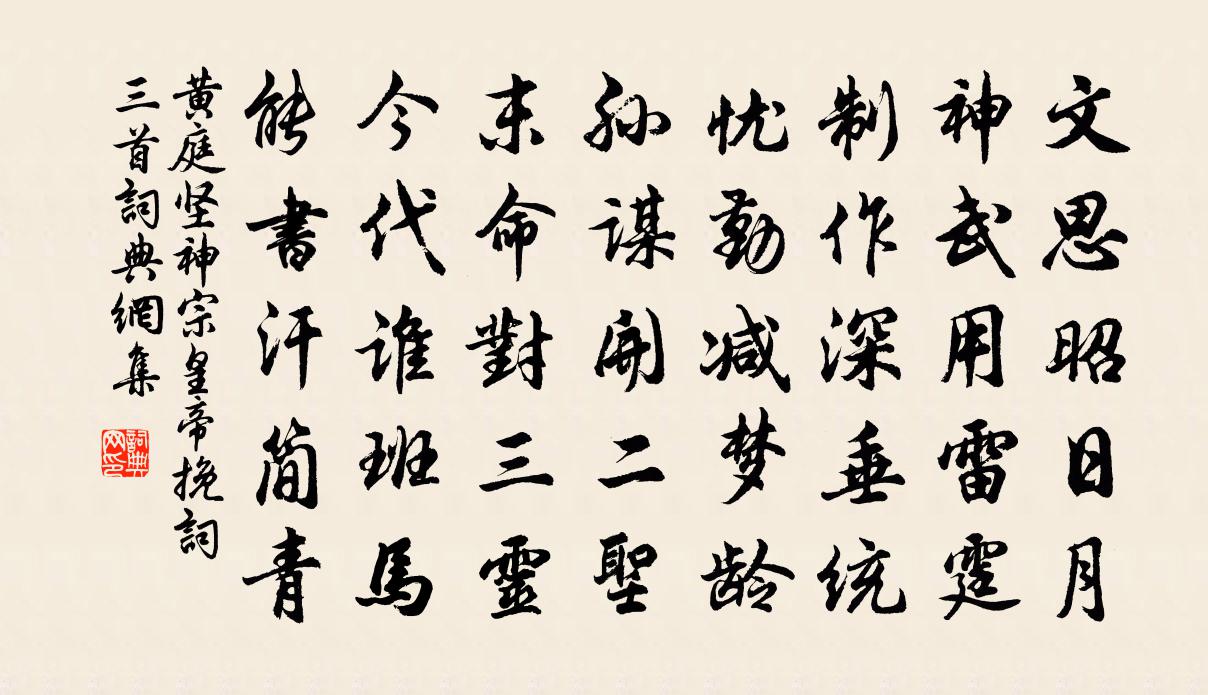 文思昭日月
神武用雷霆
制作深垂统
忧勤减梦龄
孙谋開二聖
末命對三靈
今代谁班馬
能書汗简青
黄庭坚神宗皇帝挽詞
三首詞典網集
詞典网印